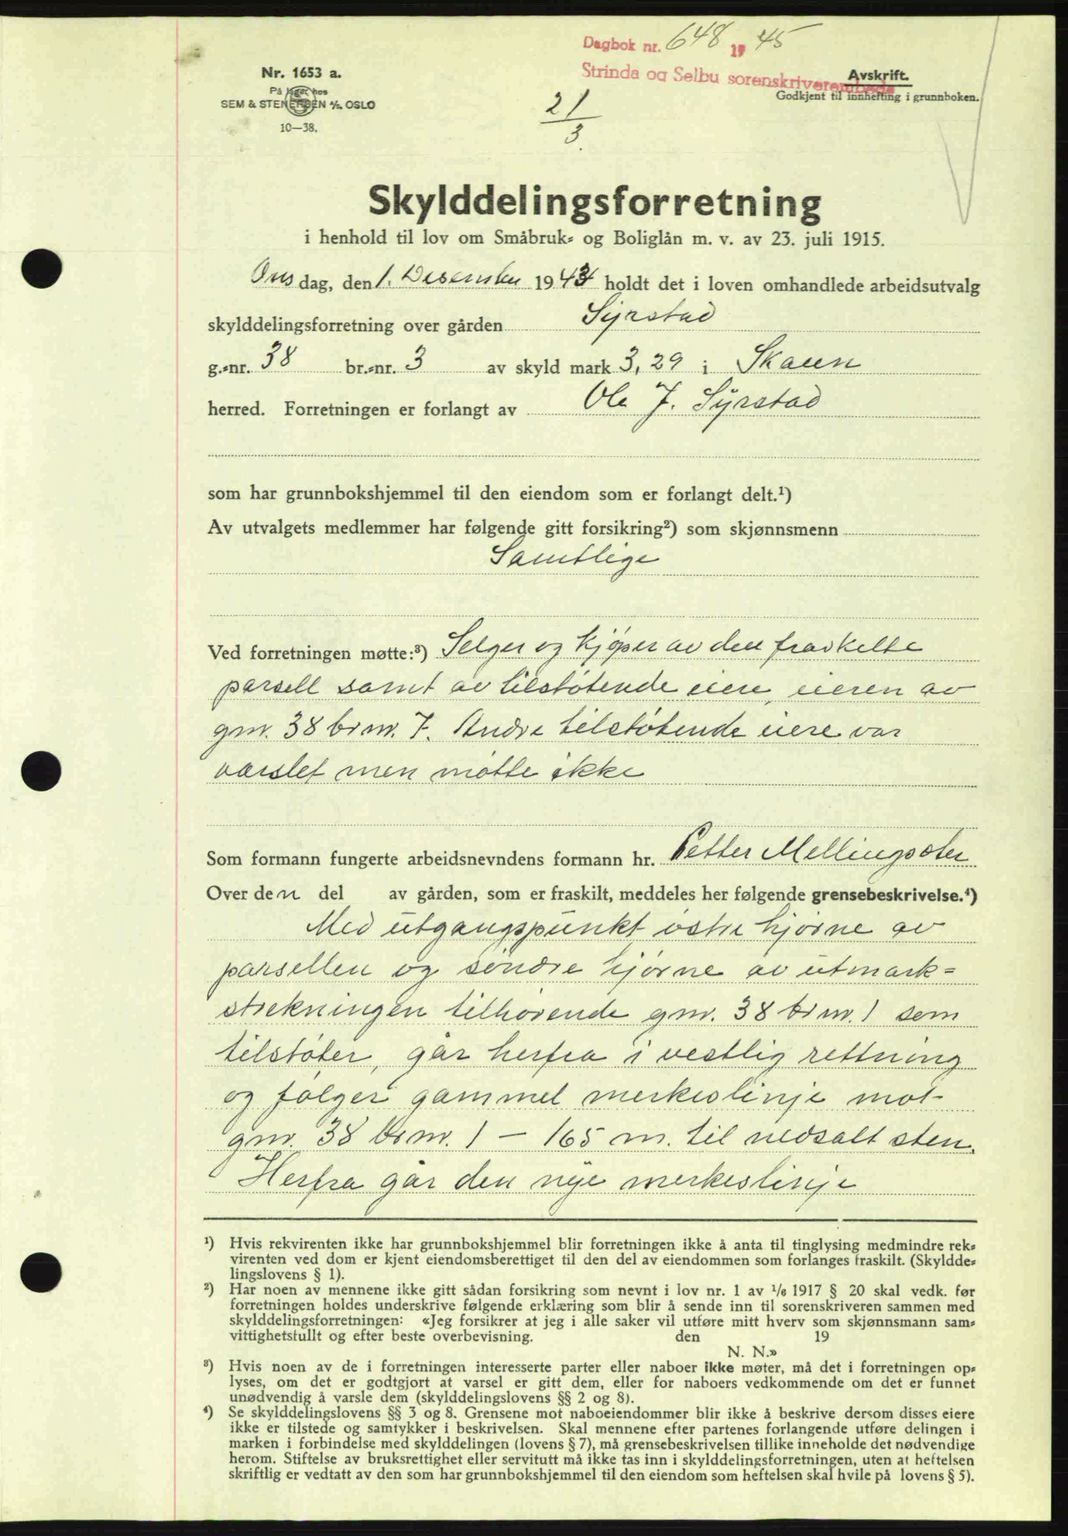 Dagbok nr. 648 1945
Strinda og Selbu sorenskriverembede
Nr. 1653 a.
På lager hos
SEM & STENERSEN A/S. OSLO
10—38.
Avskrift.
Godkjent til innhefting i grunnboken.
21/3.
Skylddelingsforretning
i henhold til lov om Småbruk= og Boliglån m. v. av 23. juli 1915.
Onsdag, den 1. Desember 1943 holdt det i loven omhandlede arbeidsutvalg
skylddelingsforretning over gården Syrstad
g.=nr. 38 br.=nr. 3 av skyld mark 3,29 i Skaun
herred. Forretningen er forlangt av Ole J. Syrstad
som har grunnbokshjemmel til den eiendom som er forlangt delt.¹)
Av utvalgets medlemmer har følgende gitt forsikring²) som skjønnsmenn
Samtlige
Ved forretningen møtte:³) Selger og kjøper av den fraskelte
parsell samt av tilstøtende eiere, eieren av
gnr. 38 brnr. 7. Andre tilstøtende eiere var
varslet men møtte ikke
Som formann fungerte arbeidsnevndens formann hr. Petter Mellingsæter
Over den del av gården, som er fraskilt, meddeles her følgende grensebeskrivelse.⁴)
Med utgangspunkt østre hjørne av
parsellen og søndre hjørne av utmark=
strekningen tilhørende gnr. 38 brnr. 1 som
tilstøter, går herfra i vestlig rettning
og følger gammel merkeslinje mot
gnr. 38 brnr. 1 — 165 m. til nedsatt sten.
Herfra går den nye merkeslinje
¹) Hvis rekvirenten ikke har grunnbokshjemmel blir forretningen ikke å anta til tinglysing medmindre rek=
virenten ved dom er kjent eiendomsberettiget til den del av eiendommen som forlanges fraskilt. (Skyldde=
lingslovens § 1).
²) Har noen av mennene ikke gitt sådan forsikring som nevnt i lov nr. 1 av 1/6 1917 § 20 skal vedk. før
forretningen holdes underskrive følgende erklæring som blir å sende inn til sorenskriveren sammen med
skylddelingsforretningen: «Jeg forsikrer at jeg i alle saker vil utføre mitt hverv som skjønnsmann sam=
vittighetsfullt og efter beste overbevisning. den 19
N. N.»
³) Hvis noen av de i forretningen interesserte parter eller naboer ikke møter, må det i forretningen op=
lyses, om det er godtgjort at varsel er gitt dem, eller for naboers vedkommende om det er funnet
unødvendig å varsle dem (skylddelingslovens §§ 2 og 8).
⁴) Se skylddelingslovens §§ 3 og 8. Grensene mot naboeiendommer blir ikke å beskrive dersom disses eiere
ikke er tilstede og samtykker i beskrivelsen. Skal mennene efter partenes forlangende utføre delingen i
marken i forbindelse med skylddelingen (lovens § 7), må grensebeskrivelsen tillike inneholde det nødvendige
herom. Stiftelse av bruksrettighet eller servitutt må ikke tas inn i skylddelingsforretningen, uten at heftelsen
skriftlig er vedtatt av den som har grunnbokshjemmel til den eiendom som heftelsen skal hvile på lovens § 5).